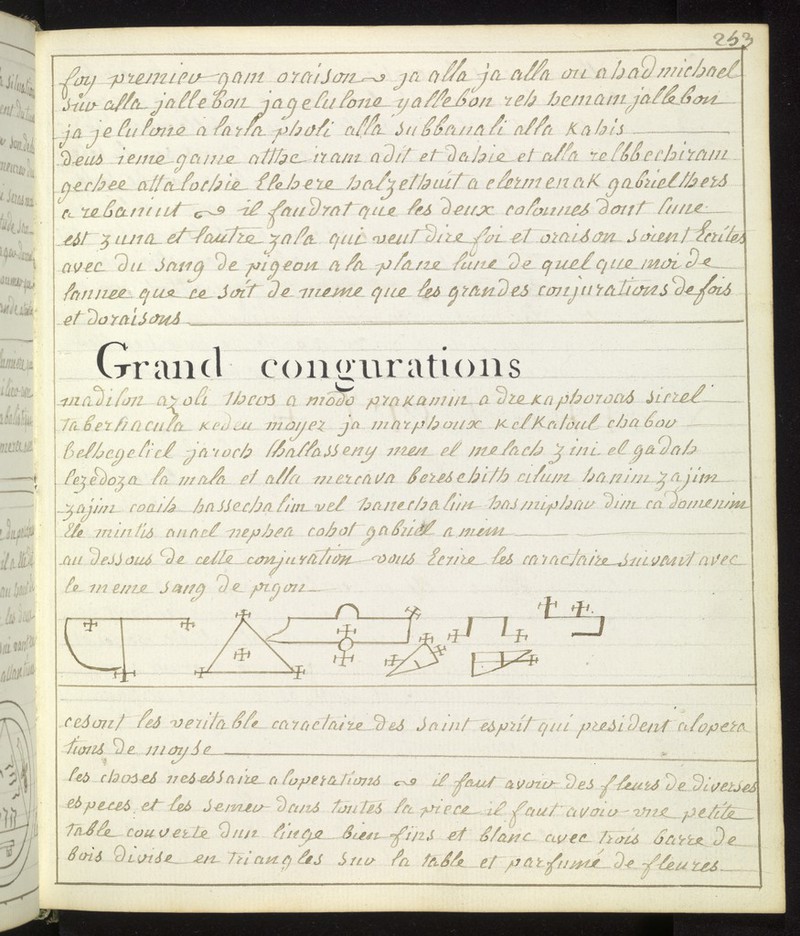 253
foy premier gam oraison ja alla ja alla ou ahad michael
sur alla jallebon jagelulone yallebon reh hemam jallebon
ja jelulone alarla pholi alla subbanali alla kahis
deus ieme game atthc iram adit et dahie et alla relbbechiram
gechee attalochie Elehere halzethuit a elermenak gabriel thers
a rebaniut il faudrat que les deux colonnes dont lune
est zuna et lautre zala qui veut dire foi et oraison soient Ecrites
avec du sang de pigeon a la plane lune de quel que moi de
lannee que ce soit de meme que les grandes conjurations defois
et doraisons
Grand congurations
madilon azoli theos a modo prakamin a dre kaphoroas sicrel
tabernacula kedeu moyez ja marphoux kelkatoul chabov
belhegeliel jaroch thallasseny men el melach zini el gadah
lezedoza la mala et alla mercava beresehith cilum hanim zajim
zajim coaih hassechalim vel hanechalim hasmiphav dim ca domenim
Ele mintis anael nephea cohot gabriel a mem
au dessous de celle conjuration vous Ecrire les caractaire suivant avec
le meme sang de pigon
cesont les verita ble caractaire des saint esprit qui president alopera
tions de moyse
les choses nesessaire a loperations il faut avoir des fleurs de diverses
especes et les semer dans toutes la piece il faut avoir vne petite
table couverte dun linge bien fins et blanc avec trois barre de
bois divise en triangles sur la table et parfumé de fleures